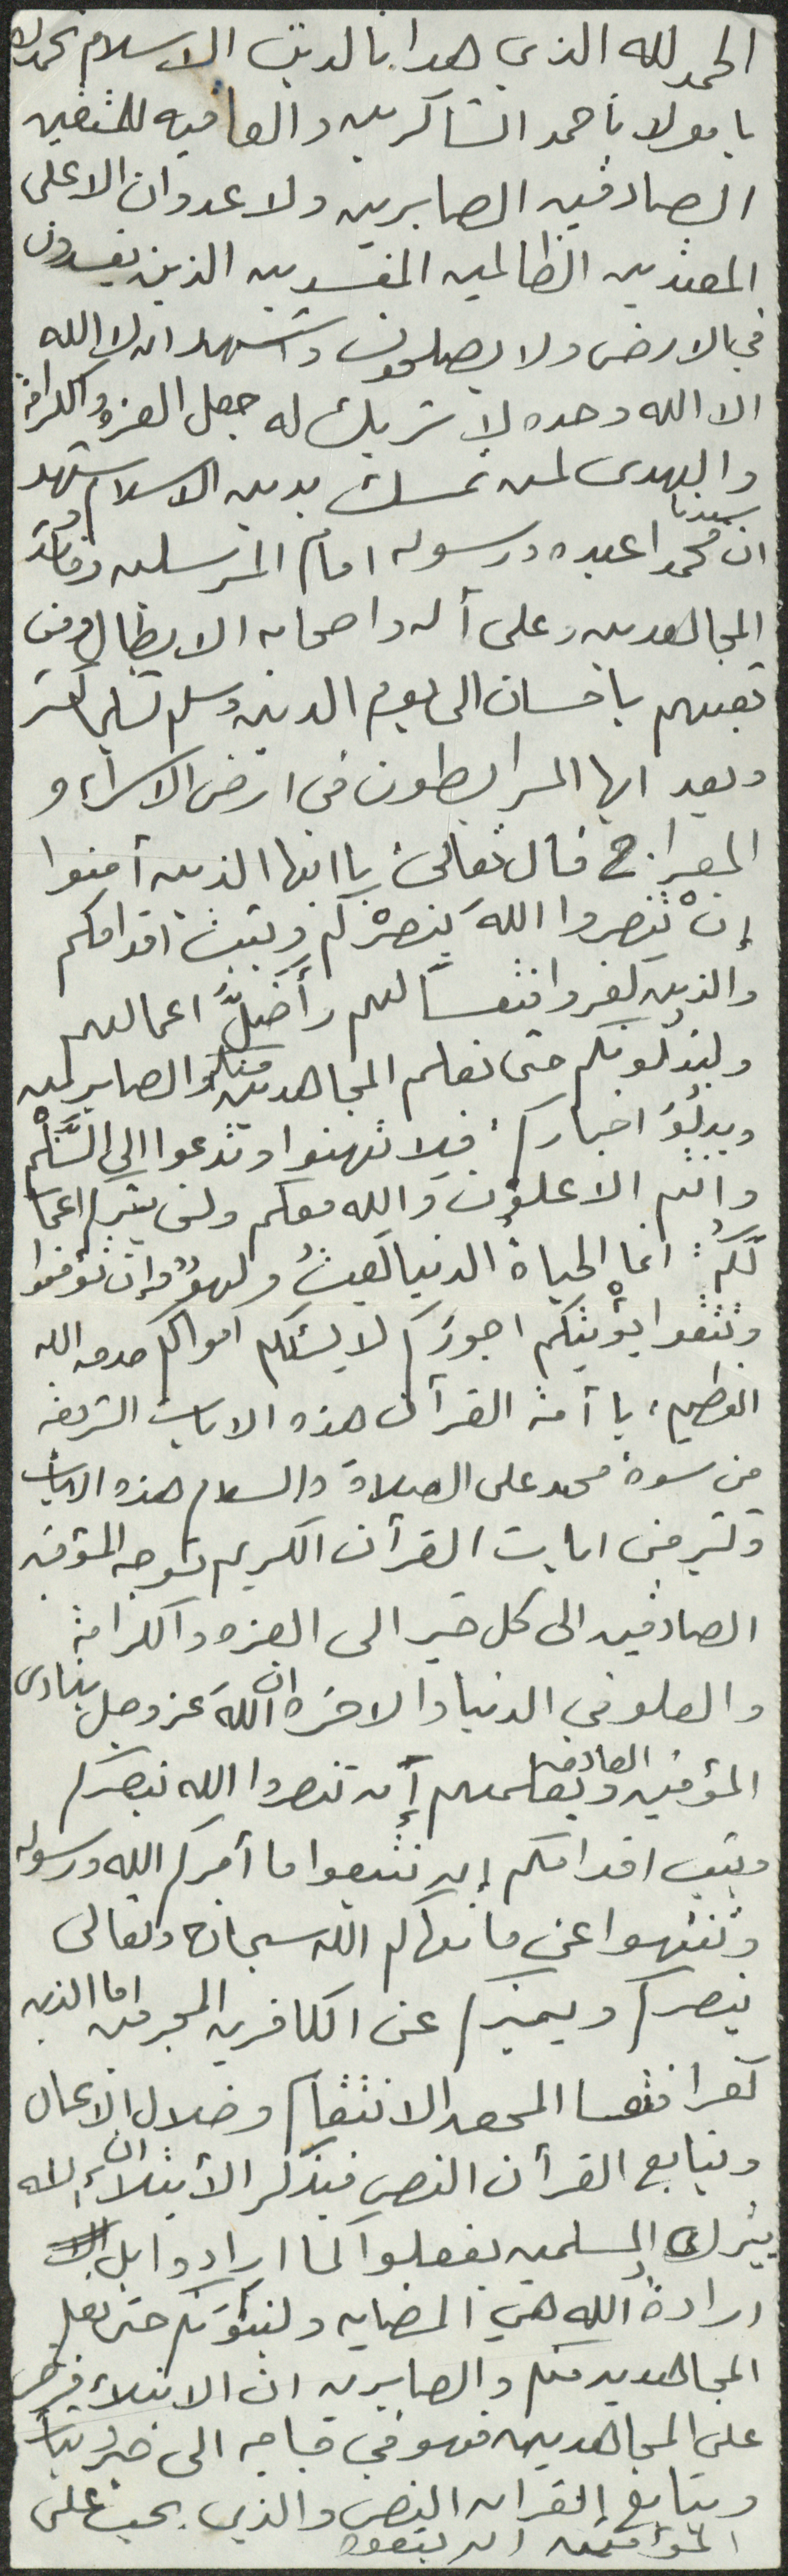 الحمد لله الذي هدانا لدين الاسلام نحمدك
يا مولانا حمد الشاكرين والعافيه للمتقين
الصادقين الصابرين ولا عدوان الا على
المعتدين الظالمين المفسدين الذين يفسدون
في الارض ولا يصلحون واشهد ان لا اله
الا الله وحده لا شريك له جعل العزه والكرامة
والهدى لمن تمسك بدين الاسلام ونشهد
ان سيدنا محمدا عبده ورسوله امام المرسلين وقائد
المجاهدين وعلى آله واصحابه الابطال ومن
تبعهم باحسان الى يوم الدين وسلم تسليما كثير
وبعد ايها المرابطون في ارض الاسراء و
المعراج قال تعالى: يا ايها الذين آمنوا
إنْ تنصروا اللهَ ينصرْكم ويثبت اقدامكم
والذين كفروا فتعساً لهم وأضلَّ اعمالهم
ولنبلونكم حتى نعلم المجاهدين منكم والصابرين
ونبلوَ اخباركم. فلا تهنوا وتدعوا الى السَّلْم
وانتم الاعلون والله معكم ولن يتركم اعما
لكم: انما الحياةُ الدنيا لعبٌ ولهوٌ وإن تؤمنوا
وتتقوا يؤْتكم اجوركم لا يسئلكم اموالكم صدق الله
العظيم، يا أمة القرآن هذه الايات الشريفه
من سورة محمد على الصلاة والسلام هذه الايات
وكثير من ايات القرآن الكريم توجه المؤمنين
الصادقين الى كل خير الى العزه والكرامة
والعلو في الدنيا والاخره ان اللهَ عز وجل ينادى
المؤمنين الصادقين ويعلمهم إن تنصروا الله ينصركم
ويثبت اقدامكم إن تتبعوا ما أمركم الله ورسوله
وتنتهوا عن ما نهاكم الله سبحانه وتعالى
ينصركم ويميزكم عن الكافرين المجرمين اما الذين
كفرا فتعسا لهم بعد الانتقام وضلال الاعمال
ويتابع القرآن النص فيذكر الأبتلاء ان الله
يترك المسلمين يفعلوا كما ارادوا بل
ارادةُ الله هي المضايه ولنبلونكم حتى نعلم
المجاهدين منكم والصابرين ان الابتلاء فرض
على المجاهدين فهو في حاجه الى خبر وثبات
ويتابع القران النص والذي يجب على
المؤمنين ان يتعود